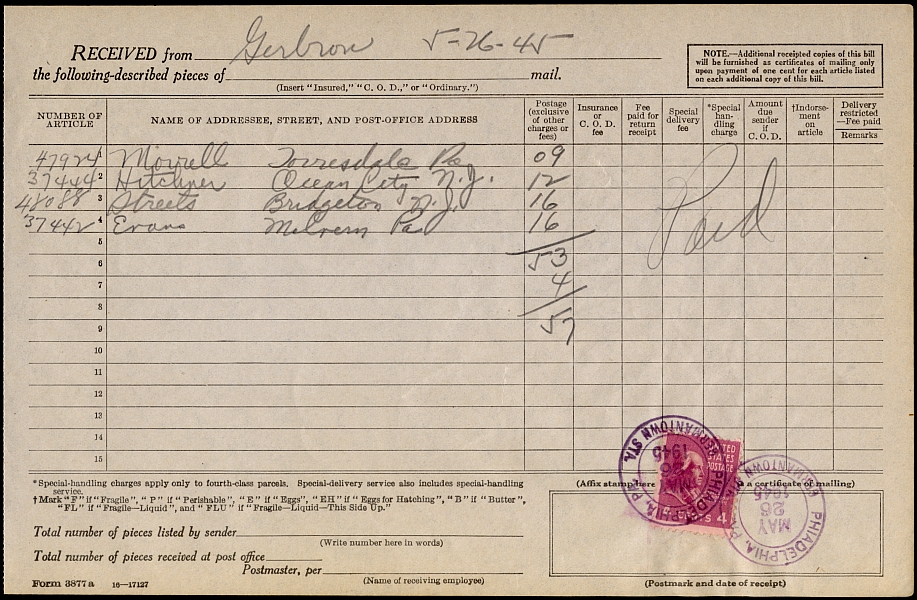 RECEIVED from Gerbron 5-26-45
the following-described pieces of mail.
(Insert "Insured," "C. O. D.," or "Ordinary.")
NOTE.—Additional receipted copies of this bill
will be furnished as certificates of mailing only
upon payment of one cent for each article listed
on each additional copy of this bill.
NUMBER OF ARTICLE NAME OF ADDRESSEE, STREET, AND POST-OFFICE ADDRESS Postage (exclusive of other charges or fees) Insurance or C. O. D. fee Fee paid for return receipt Special delivery fee *Special handling charge Amount due sender if C. O. D. †Indorsement on article Delivery restricted—Fee paid Remarks
47924 1 Morrell Torresdale Pa 09
37444 2 Hitchner Ocean City N.J. 12
48088 3 Streets Bridgeton N.J. 16
37442 4 Evans Malvern Pa 16
Paid
5
6 53
7 4
8
9 57
10
11
12
13
14
15
*Special-handling charges apply only to fourth-class parcels. Special-delivery service also includes special-handling
service.
†Mark "F" if "Fragile", "P" if "Perishable", "E" if "Eggs", "EH" if "Eggs for Hatching", "B" if "Butter",
"FL" if "Fragile—Liquid", and "FLU" if "Fragile—Liquid—This Side Up."
Total number of pieces listed by sender
(Write number here in words)
Total number of pieces received at post office
Postmaster, per
(Name of receiving employee)
Form 3877 a 16—17127
(Affix stamp here a certificate of mailing)
UNITED
STATES
POSTAGE
4
PHILADELPHIA, PA.
GERMANTOWN STA.
MAY
26
1945
PHILADELPHIA, PA.
GERMANTOWN
MAY
26
1945
(Postmark and date of receipt)